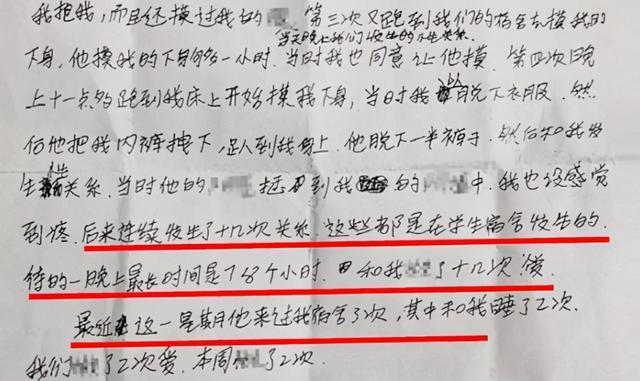 我抱我,而且还摸过我的 第三次又跑到我们的宿舍去摸我的
当天晚上我们发生的性关系
下身,他摸我的下身够一小时.当时我也同意让他摸.第四次晚
上十一点多跑到我床上开始摸我下身,当时我 脱下衣服.然
后他把我内裤拽下, 到我身上.他脱下一半裤子.然后和我发
生性关系.当时他的 把 到我 的 中.我也没感觉
到疼.后来连续发生了十几次关系.这些都是在学生宿舍发生的.
待的一晚上最长时间是7 8个小时. 和我 了十几次爱.
最近 这一星期他来过我宿舍3次,其中和我睡了2次.
我们 了2次爱.本周 了2次.